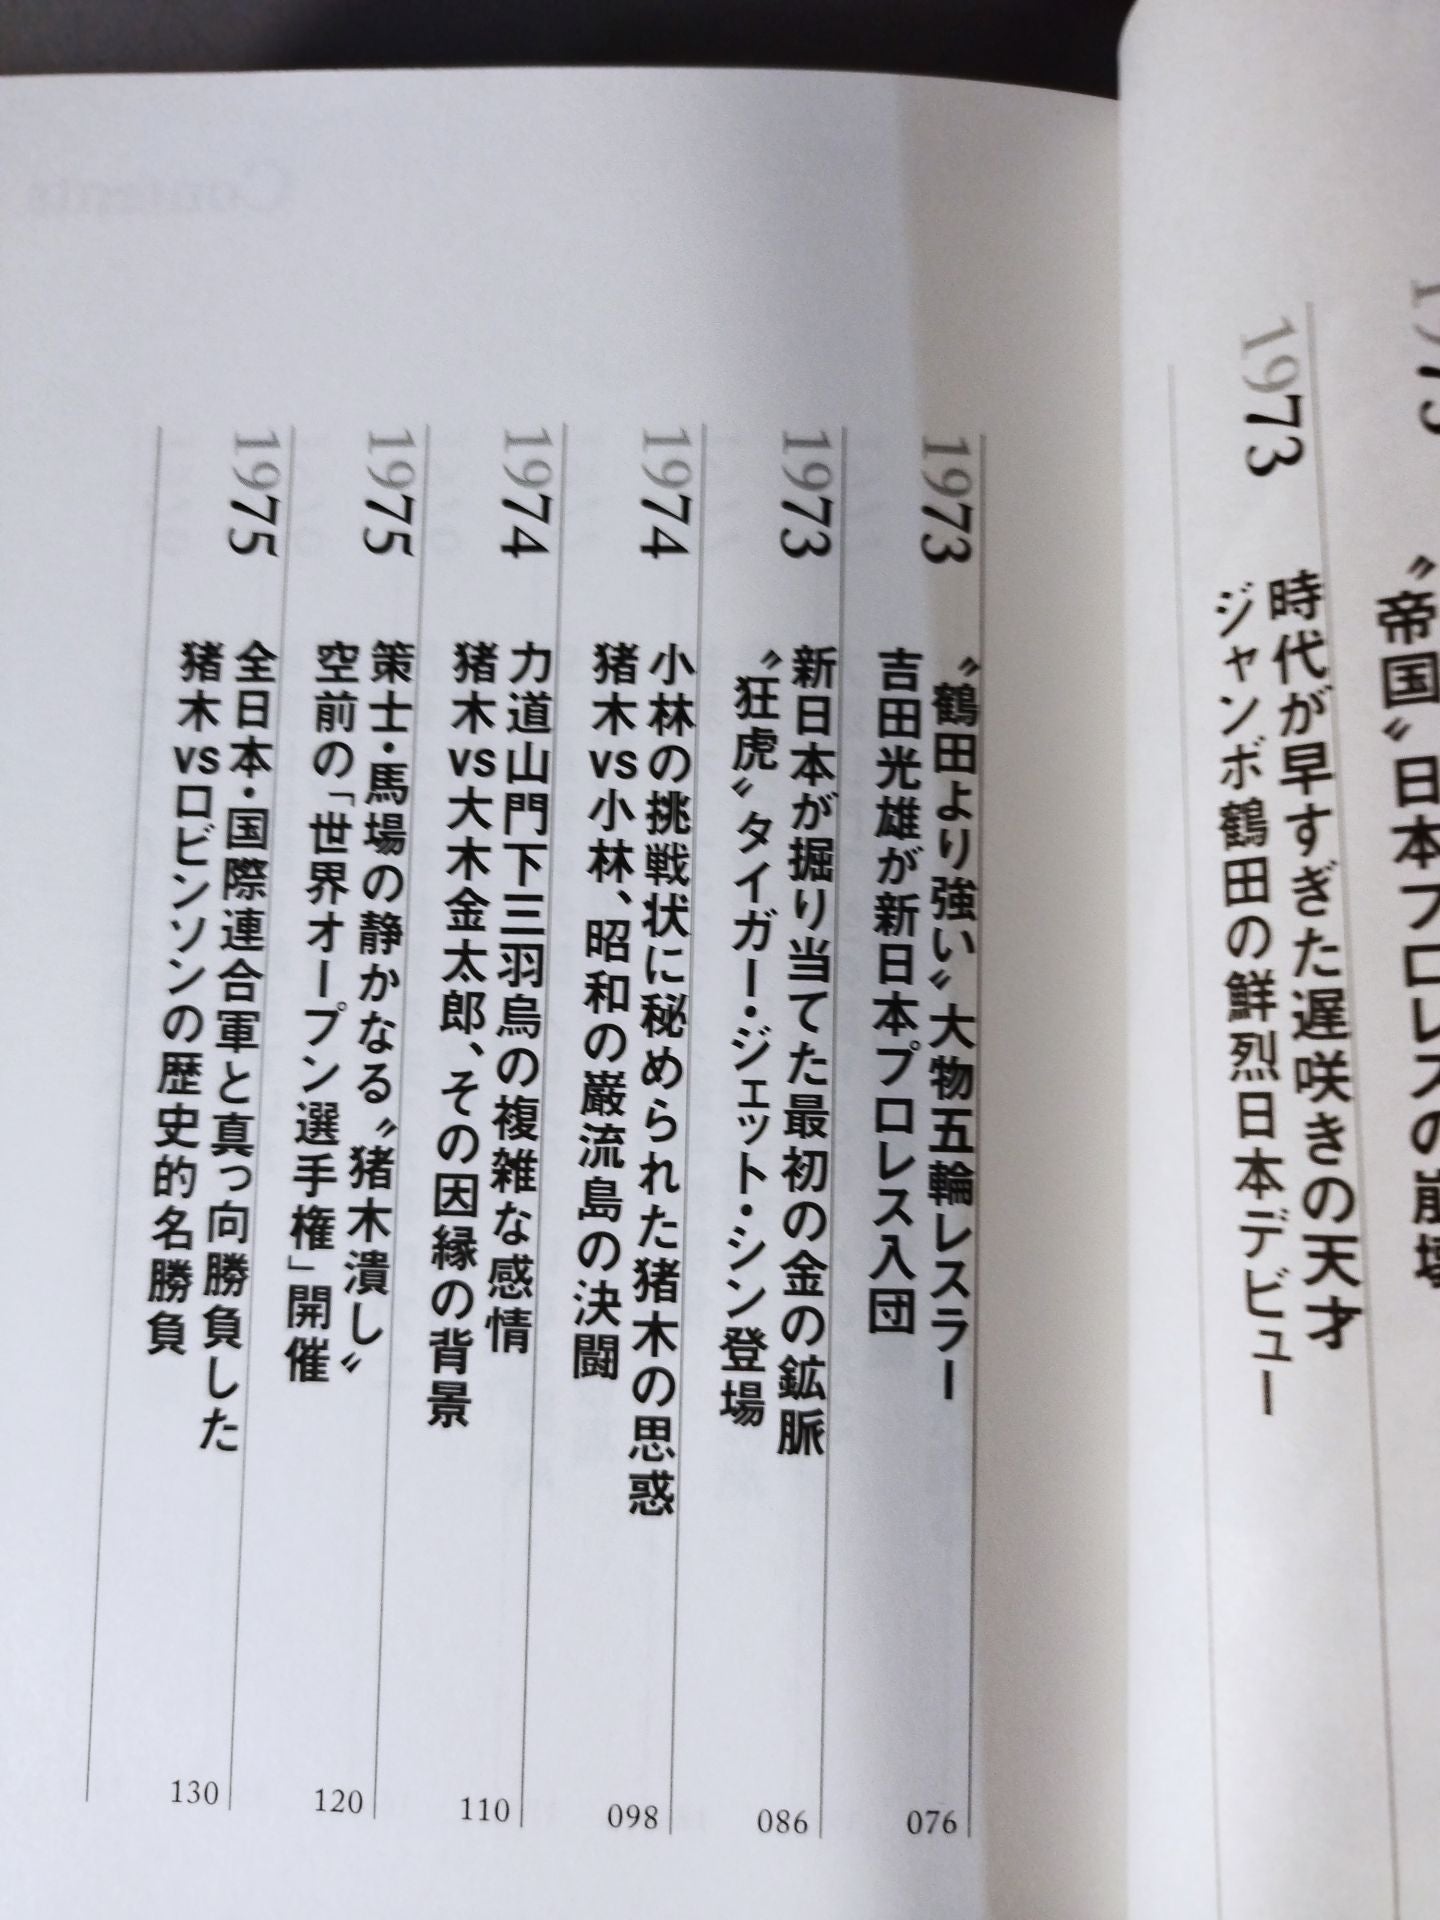 〝帝国〟日本プロレスの崩壊
1973
時代が早すぎた遅咲きの天才
ジャンボ鶴田の鮮烈日本デビュー
1973
〝鶴田より強い〟大物五輪レスラー
吉田光雄が新日本プロレス入団
076
1973
新日本が掘り当てた最初の金の鉱脈
〝狂虎〟タイガー・ジェット・シン登場
086
1974
小林の挑戦状に秘められた猪木の思惑
猪木vs小林、昭和の巌流島の決闘
098
1974
力道山門下三羽烏の複雑な感情
猪木vs大木金太郎、その因縁の背景
110
1975
策士・馬場の静かなる〝猪木潰し〟
空前の「世界オープン選手権」開催
120
1975
全日本・国際連合軍と真っ向勝負した
猪木vsロビンソンの歴史的名勝負
130
Contents